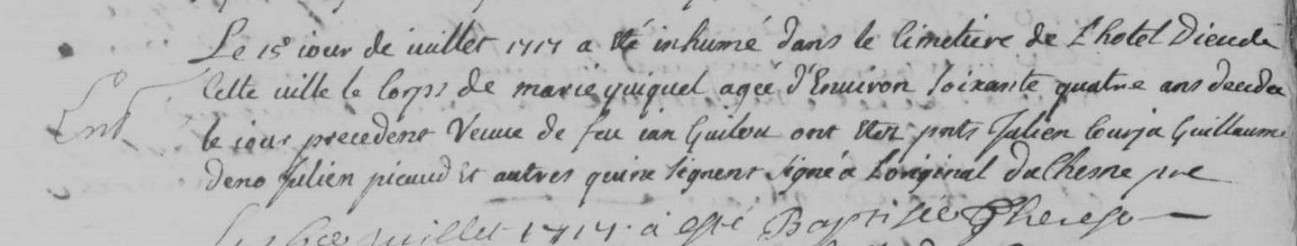 Le 15e iour de iuillet 1717 a eté inhumé dans le Cimetiere de L'hotel Dieu de
Cette uille le Corps de marie quiquel ageé d'Enuiron soixante quatre ans decedee
le iour precedent Veuue de feu ian Guilou ont etez pnts Julien Courja Guillaume
deno Julien picaud et autres qui ne signent signé a L'original duChesne pre
iuillet 1717 a esté Baptisée Therese